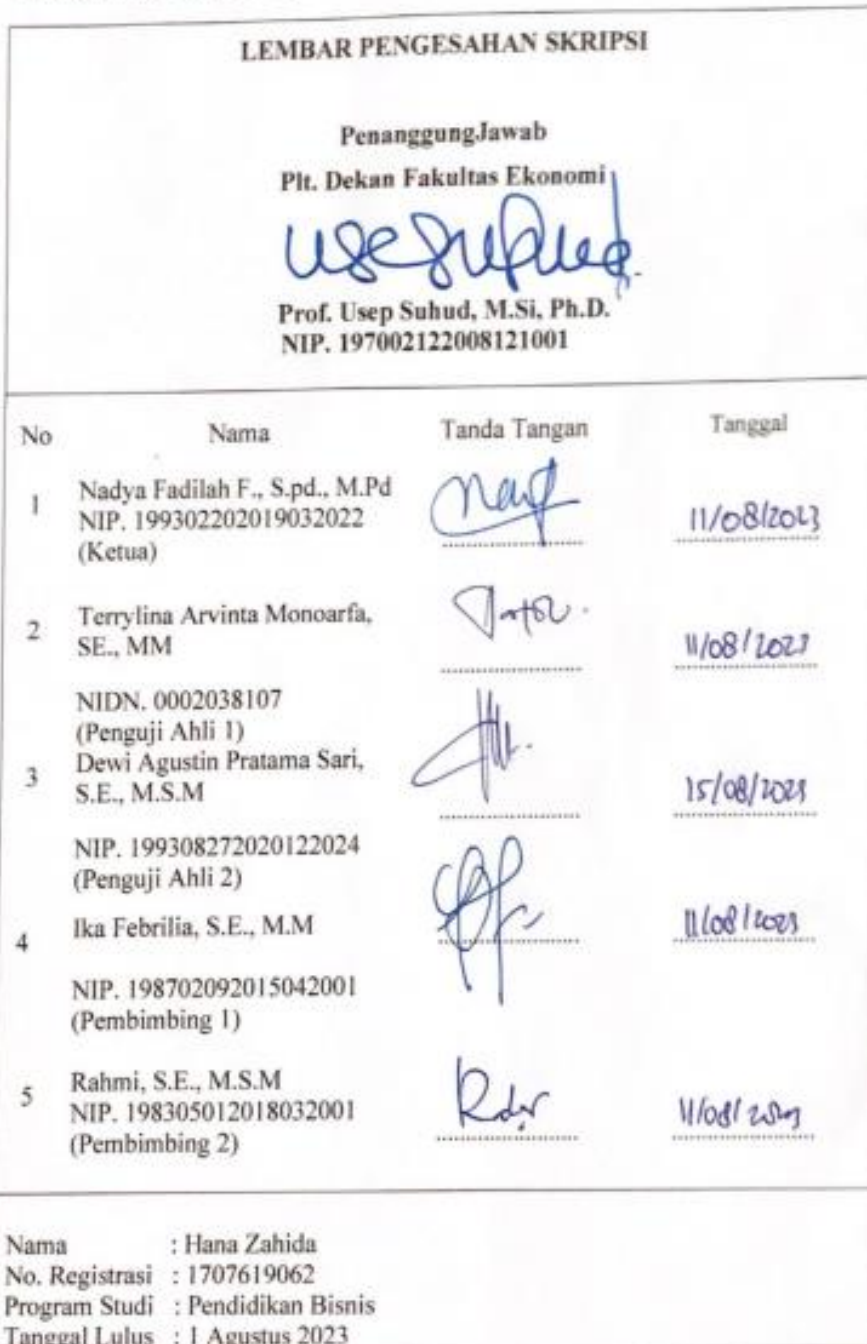 LEMBAR PENGESAHAN SKRIPSI
PenanggungJawab
Plt. Dekan Fakultas Ekonomi
Prof. Usep Suhud, M.Si, Ph.D.
NIP. 197002122008121001
No Nama Tanda Tangan Tanggal
1 Nadya Fadilah F., S.pd., M.Pd
NIP. 199302202019032022 11/08/2023
(Ketua)
2 Terrylina Arvinta Monoarfa,
SE., MM 11/08/2023
NIDN. 0002038107
(Penguji Ahli 1)
3 Dewi Agustin Pratama Sari,
S.E., M.S.M 15/08/2023
NIP. 199308272020122024
(Penguji Ahli 2)
4 Ika Febrilia, S.E., M.M 11/08/2023
NIP. 198702092015042001
(Pembimbing 1)
5 Rahmi, S.E., M.S.M
NIP. 198305012018032001 11/08/2023
(Pembimbing 2)
Nama : Hana Zahida
No. Registrasi : 1707619062
Program Studi : Pendidikan Bisnis
Tanggal Lulus : 1 Agustus 2023